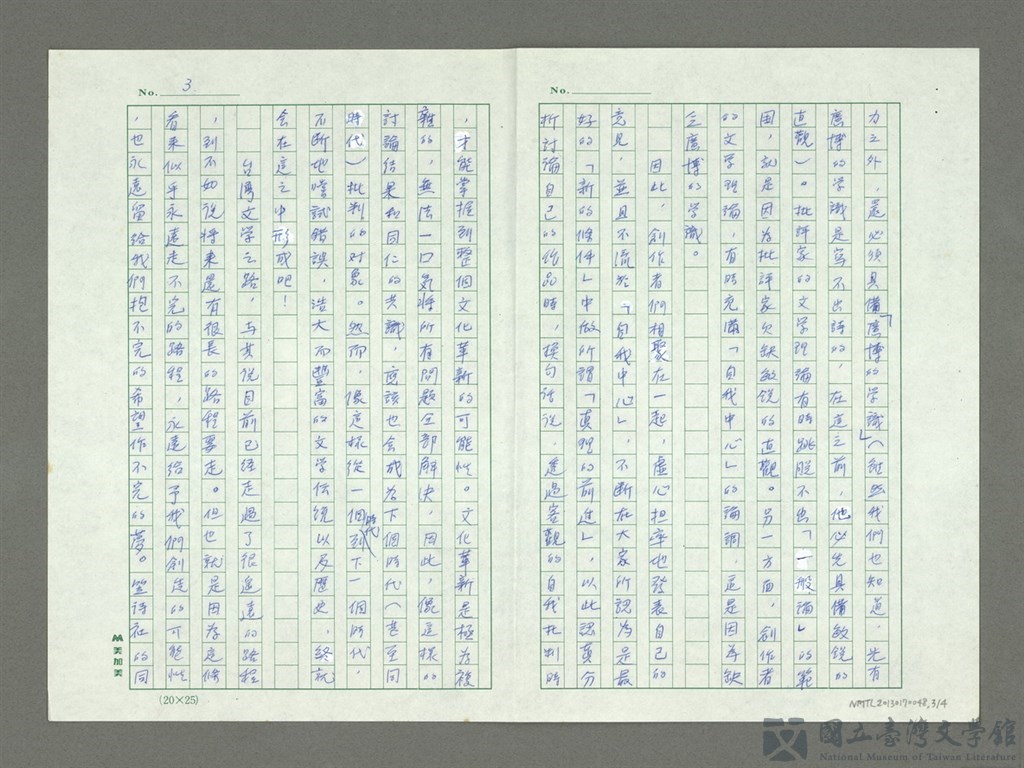 No.
力之外，還必須具備「廣博的学識」（雖然我們也知道，光有
廣博的学識是寫不出詩的，在這之前，他必先具備敏銳的
直觀）。批評家的文学理論有時跳脫不出「一般論」的範
圍，就是因為批評家欠缺敏銳的直觀。另一方面，創作者
的文学理論，有時充滿「自我中心」的論調，這是因為缺
乏廣博的学識。
因此，創作者們相聚在一起，虛心担率地發表自己的
意見，並且不流於「自我中心」，不断在大家所認為是最
好的「新的條件」中做所謂「真理的前進」，以此認真分
析討論自己的作品時，換句話說，透過客觀的自我批判時
No. 3
，才能掌握到整個文化革新的可能性。文化革新是極為複
雜的，無法一口気將所有問題全部解決，因此，儘這樣的
討論結果和同仁的共識，應該也会成為下個時代（甚至同
時代）批判的对象。然而，像這樣從一個時代到下一個時代，
不断地嚐試錯誤，浩大而豐富的文学伝統以及歷史，終就
会在這之中形成吧！
台灣文学之路，与其說目前已経走過了很遙遠的路程
，到不如說將來還有很長的路程要走。但也就是因為這條
看來似乎永遠走不完的路程，永遠給予我們創造的可能性
，也永遠留給我們抱不完的希望作不完的夢。笠詩社的同
美加美
(20×25)
NMTL20130170048,3/4
國立臺灣文学館
National Museum of Taiwan Literature